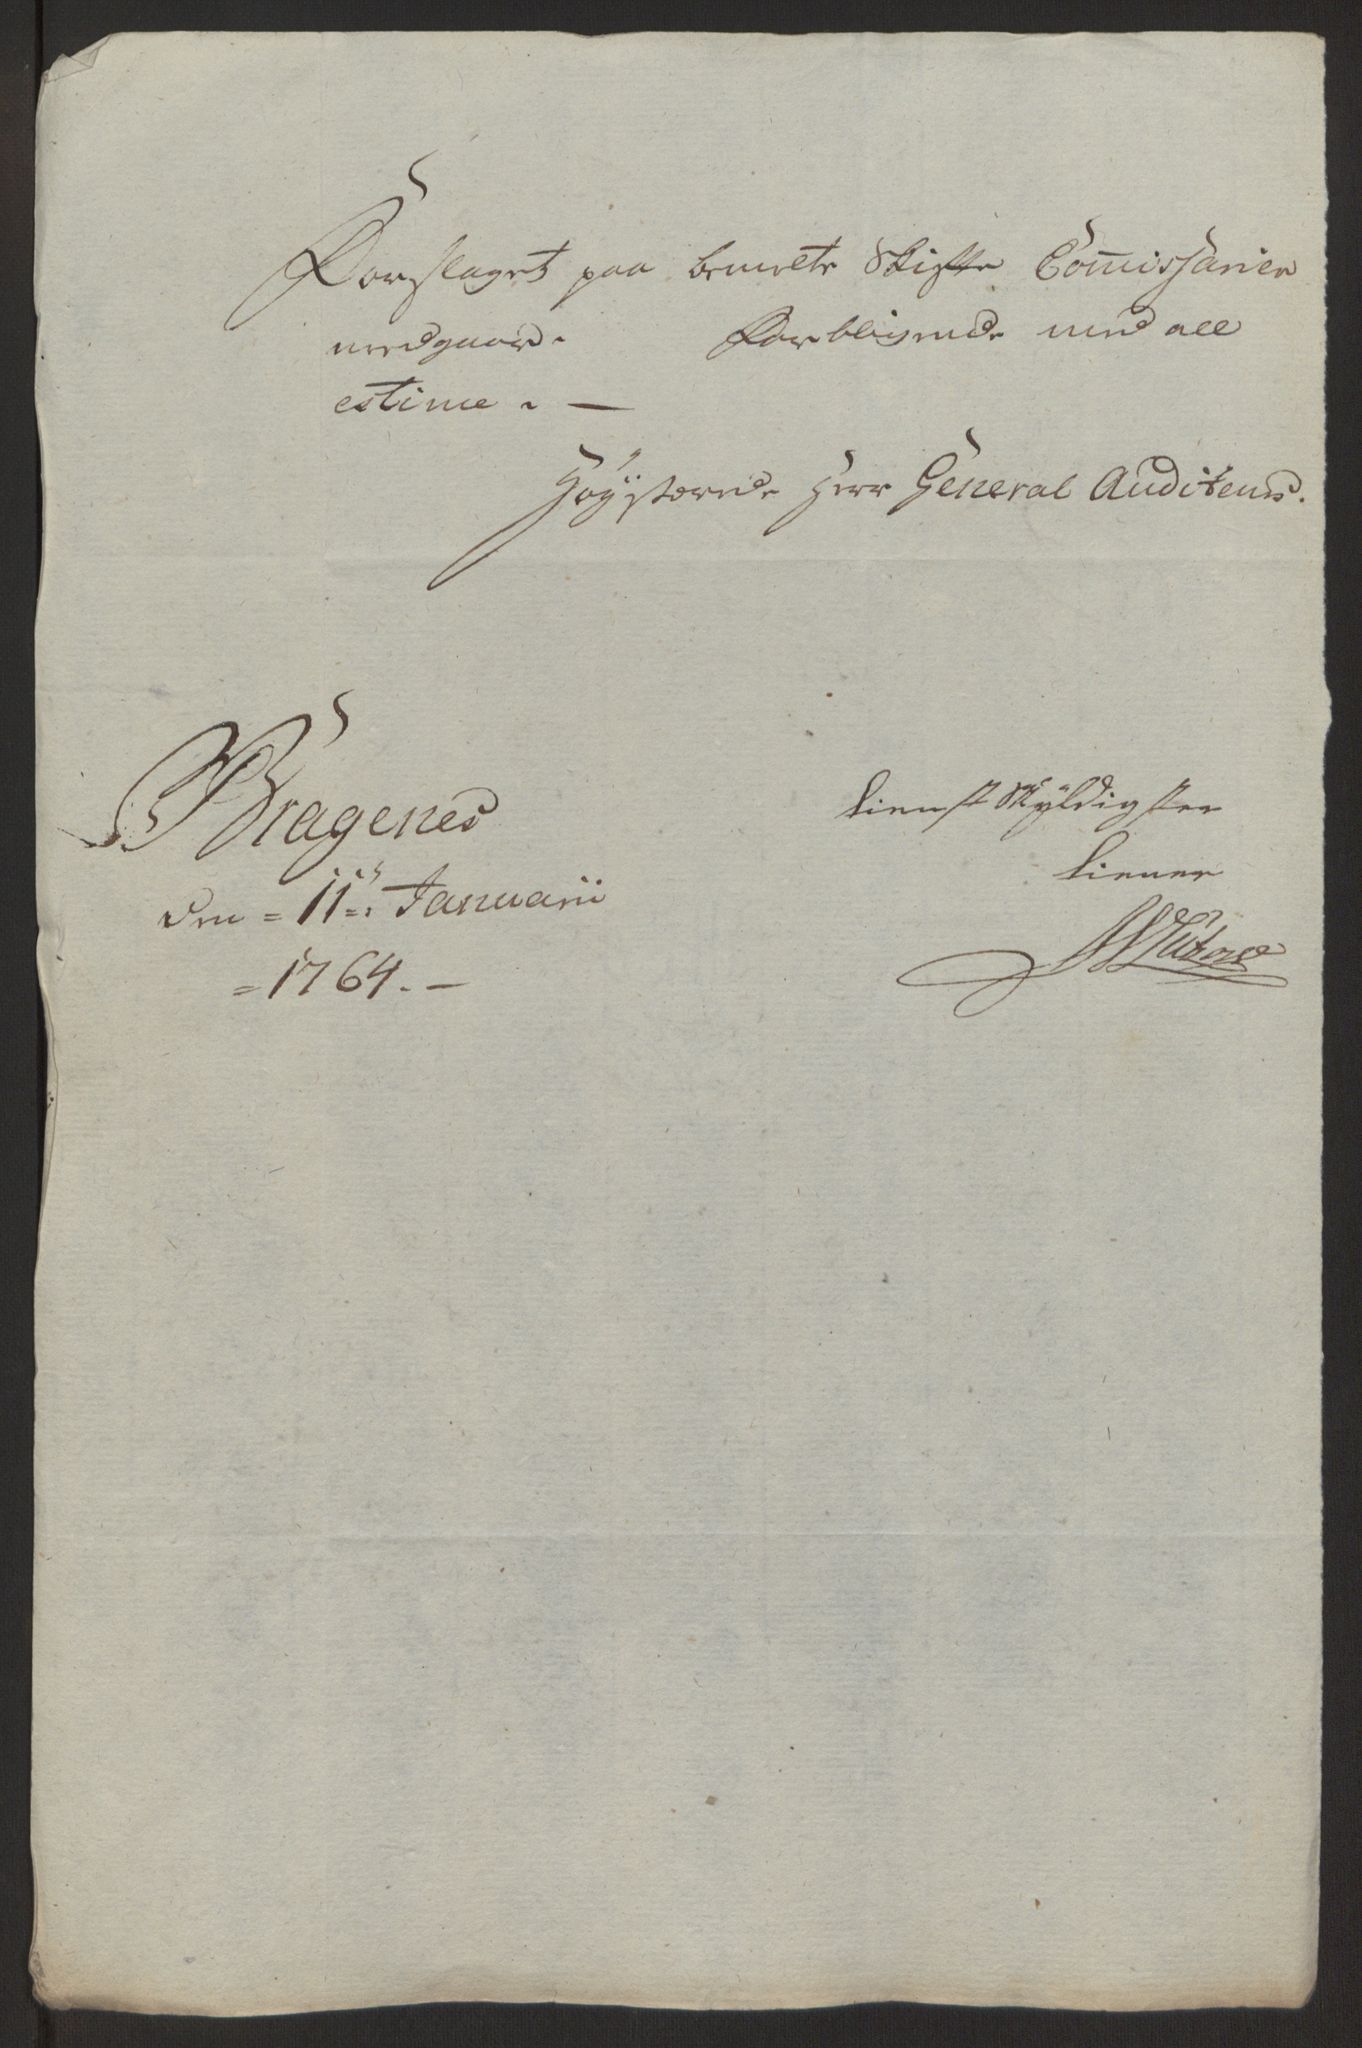 Forslaget paa bemelte Skifte Com̅issarier
medgaar. Forblivende med all
estime. –
Høystærede Herr General Auditeur.
Bragenes
den 11te Januarii
1764. –
tienstskÿldigster
tiener